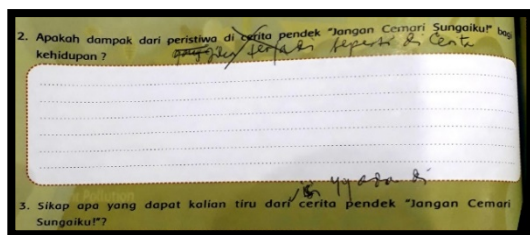 2. Apakah dampak dari peristiwa di cerita pendek "Jangan Cemari Sungaiku!" bagi
terjadi seperti di Cerita
kehidupan ?
yg ada di
3. Sikap apa yang dapat kalian tiru dari cerita pendek "Jangan Cemari
Sungaiku!"?